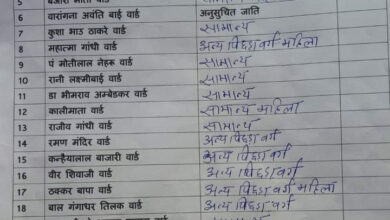 5 बजारी माता वार्ड
6 वारांगना अवंति बाई वार्ड अनुसुचित जाति
7 कुशा भाउ ठाकरे वार्ड सामान्य
8 महात्मा गांधी वार्ड अन्य पिछडा वर्ग महिला
9 पं मोतीलाल नेहरू वार्ड सामान्य
10 रानी लक्ष्मीबाई वार्ड सामान्य
11 डा भीमराव अम्बेडकर वार्ड सामान्य
12 कालीमाता वार्ड सामान्य महिला
13 राजीव गांधी वार्ड सामान्य
14 रमण मंदिर वार्ड अन्य पिछडा वर्ग
15 कन्हैयालाल बाजारी वार्ड अन्य पिछडा वर्ग
16 वीर शिवाजी वार्ड अन्य पिछडा वर्ग
17 ठक्कर बापा वार्ड अन्य पिछडा वर्ग महिला
18 बाल गंगाधर तिलक वार्ड अन्य पिछडा वर्ग